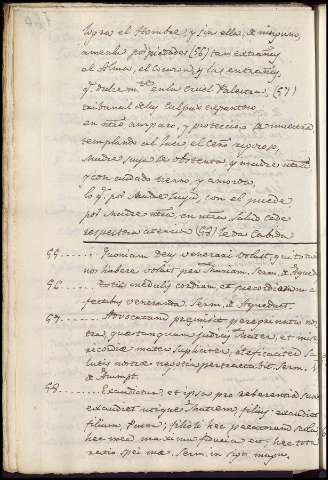 logra el Hombre, y sin ella, de ninguno,
amenla por piedades (56) tan extrañas
el Alma, el corazon, y las entrañas
q.e dulce m.te en la cruel Palestra, (57)
tribunal de las culpas espantoso,
en ntro amparo, y proteccion se muestra
templando al Juez el ceño rigoroso,
Madre suya se obstenta, y madre ntra
y con cuidado tierno, y amoroso,
lo q.e por Madre suya, con el puede
por Madre ntra, en ntra salud cede
respectiva atencion (58) le da cabida
55 ...... Quoniam deus venerari voluit, qui totum
nos habere voluit per Mariam. Serm. de Aqued.
56 ...... Totis medulis cordium et precordiorum a-
fectibus veneranda. Serm. de Aqueduct.
57 ...... Advocatam premisit peregrinatio nos-
tra, quae tanquam judicis Mater, et mise-
ricordiae mater supliciter, et eficaciter sa-
lutis nostrae negotia pertractabit. Serm. 1
de Asumpt.
58 ...... Exaudietur, et ipsa pro reverentia sua
exaudiet utique Matrem filius, exaudiet
filium, Pater; filioli hec pecatorum scala
hec mea maxima fiducia est, hec tota
ratio spei meae. Serm. in